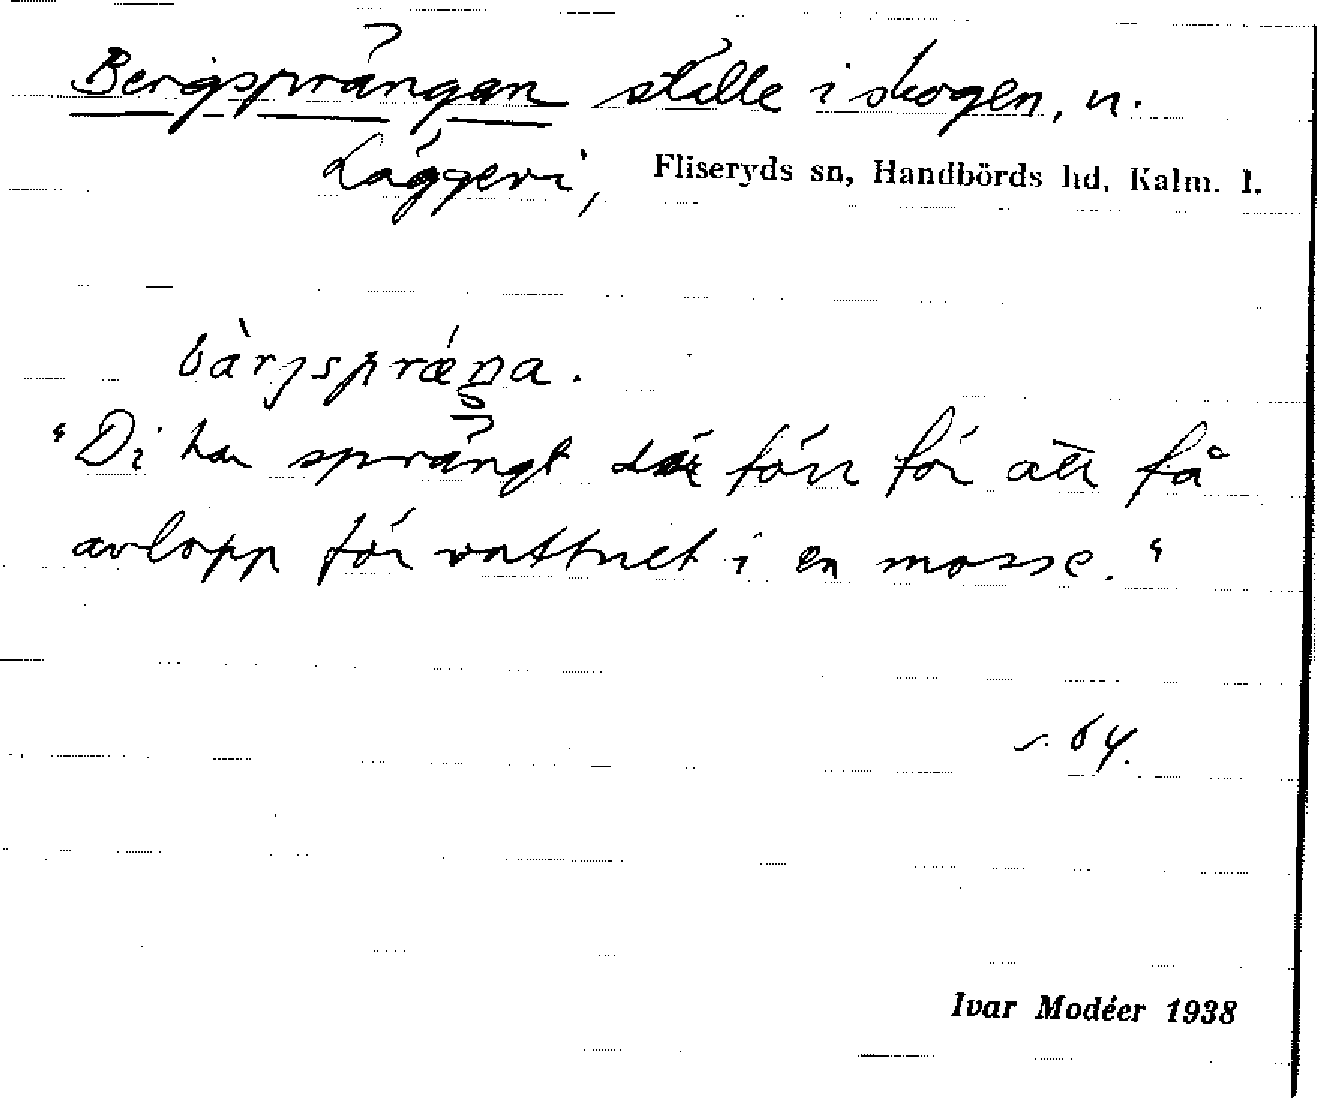 Bergsprängan ställe i skogen, n.
Läggevi, Fliseryds sn, Handbörds hd, Kalm. l.
bàrjspræŋa.
"Di har sprängt där förr för att få
avlopp för vattnet i en mosse."
s. 64.
Ivar Modéer 1938